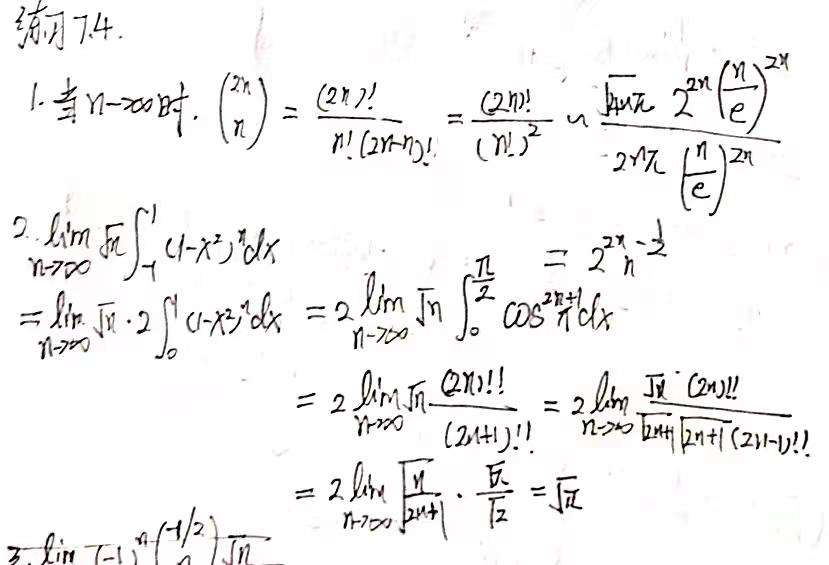 练习7.4.
1. 当n->∞时. (2n n) = (2n)! / n!(2n-n)! = (2n)! / (n!)^2 ~ √4nπ 2^{2n} (n/e)^{2n} / 2nπ (n/e)^{2n}
= 2^{2n} n^{-1/2}
2. lim n->∞ √n ∫_{-1}^{1} (1-x²)^n dx
= lim n->∞ √n · 2 ∫_0^1 (1-x²)^n dx = 2 lim n->∞ √n ∫_0^{π/2} cos^{2n+1} x dx
= 2 lim n->∞ √n (2n)!! / (2n+1)!! = 2 lim n->∞ √n · (2n)!! / √2n+1 √2n+1 (2n-1)!!
= 2 lim n->∞ √n/2n+1 · √π / √2 = √π
3. lim (-1)^n (-1/2 n) √n